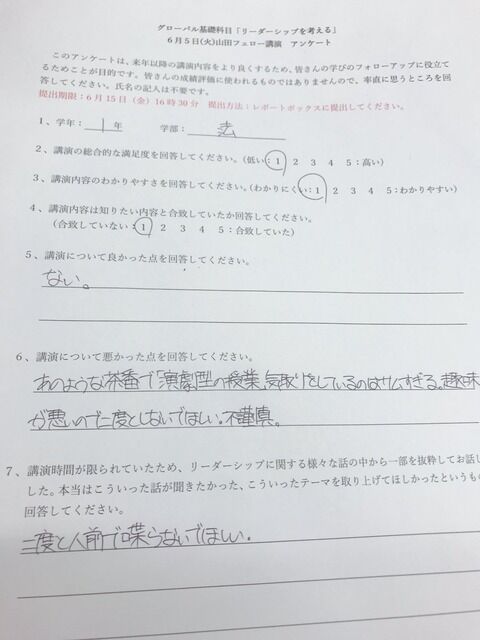 グローバル基礎科目「リーダーシップを考える」
6月5日(火)山田フェロー講演 アンケート
このアンケートは、来年以降の講演内容をより良くするため、皆さんの学びのフォローアップに役立て
るためことが目的です。皆さんの成績評価に使われるものではありませんので、率直に思うところを回
答してください。氏名の記入は不要です。
提出期限：6月15日（金）16時30分 提出方法：レポートボックスに提出してください。
1、学年： 1 年 学部： 法
2、講演の総合的な満足度を回答してください。（低い：1 2 3 4 5：高い）
3、講演内容のわかりやすさを回答してください。（わかりにくい：1 2 3 4 5：わかりやすい）
4、講演内容は知りたい内容と合致していたか回答してください。
（合致していない：1 2 3 4 5：合致していた）
5、講演について良かった点を回答してください。
ない。
6、講演について悪かった点を回答してください。
あのような茶番で「演劇型の授業」気取りをしているのはサムすぎる。趣味
が悪いので二度としないでほしい。不謹慎。
7、講演時間が限られていたため、リーダーシップに関する様々な話の中から一部を抜粋してお話し
した。本当はこういった話が聞きたかった、こういったテーマを取り上げてほしかったというもの
回答してください。
二度と人前で喋らないでほしい。